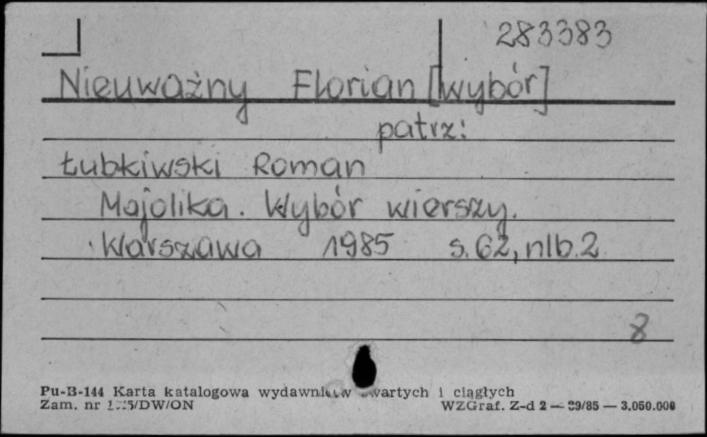 283383
Nieuważny Florian [wybór]
patrz:
Łubkiwski Roman
Majolika. Wybór wierszy.
Warszawa 1985 s. 62, nlb. 2
8
Pu-B-144 Karta katalogowa wydawnictw zwartych i ciągłych
Zam. nr /DW/ON WZGraf. Z-d 2 — 29/85 — 3.050.000